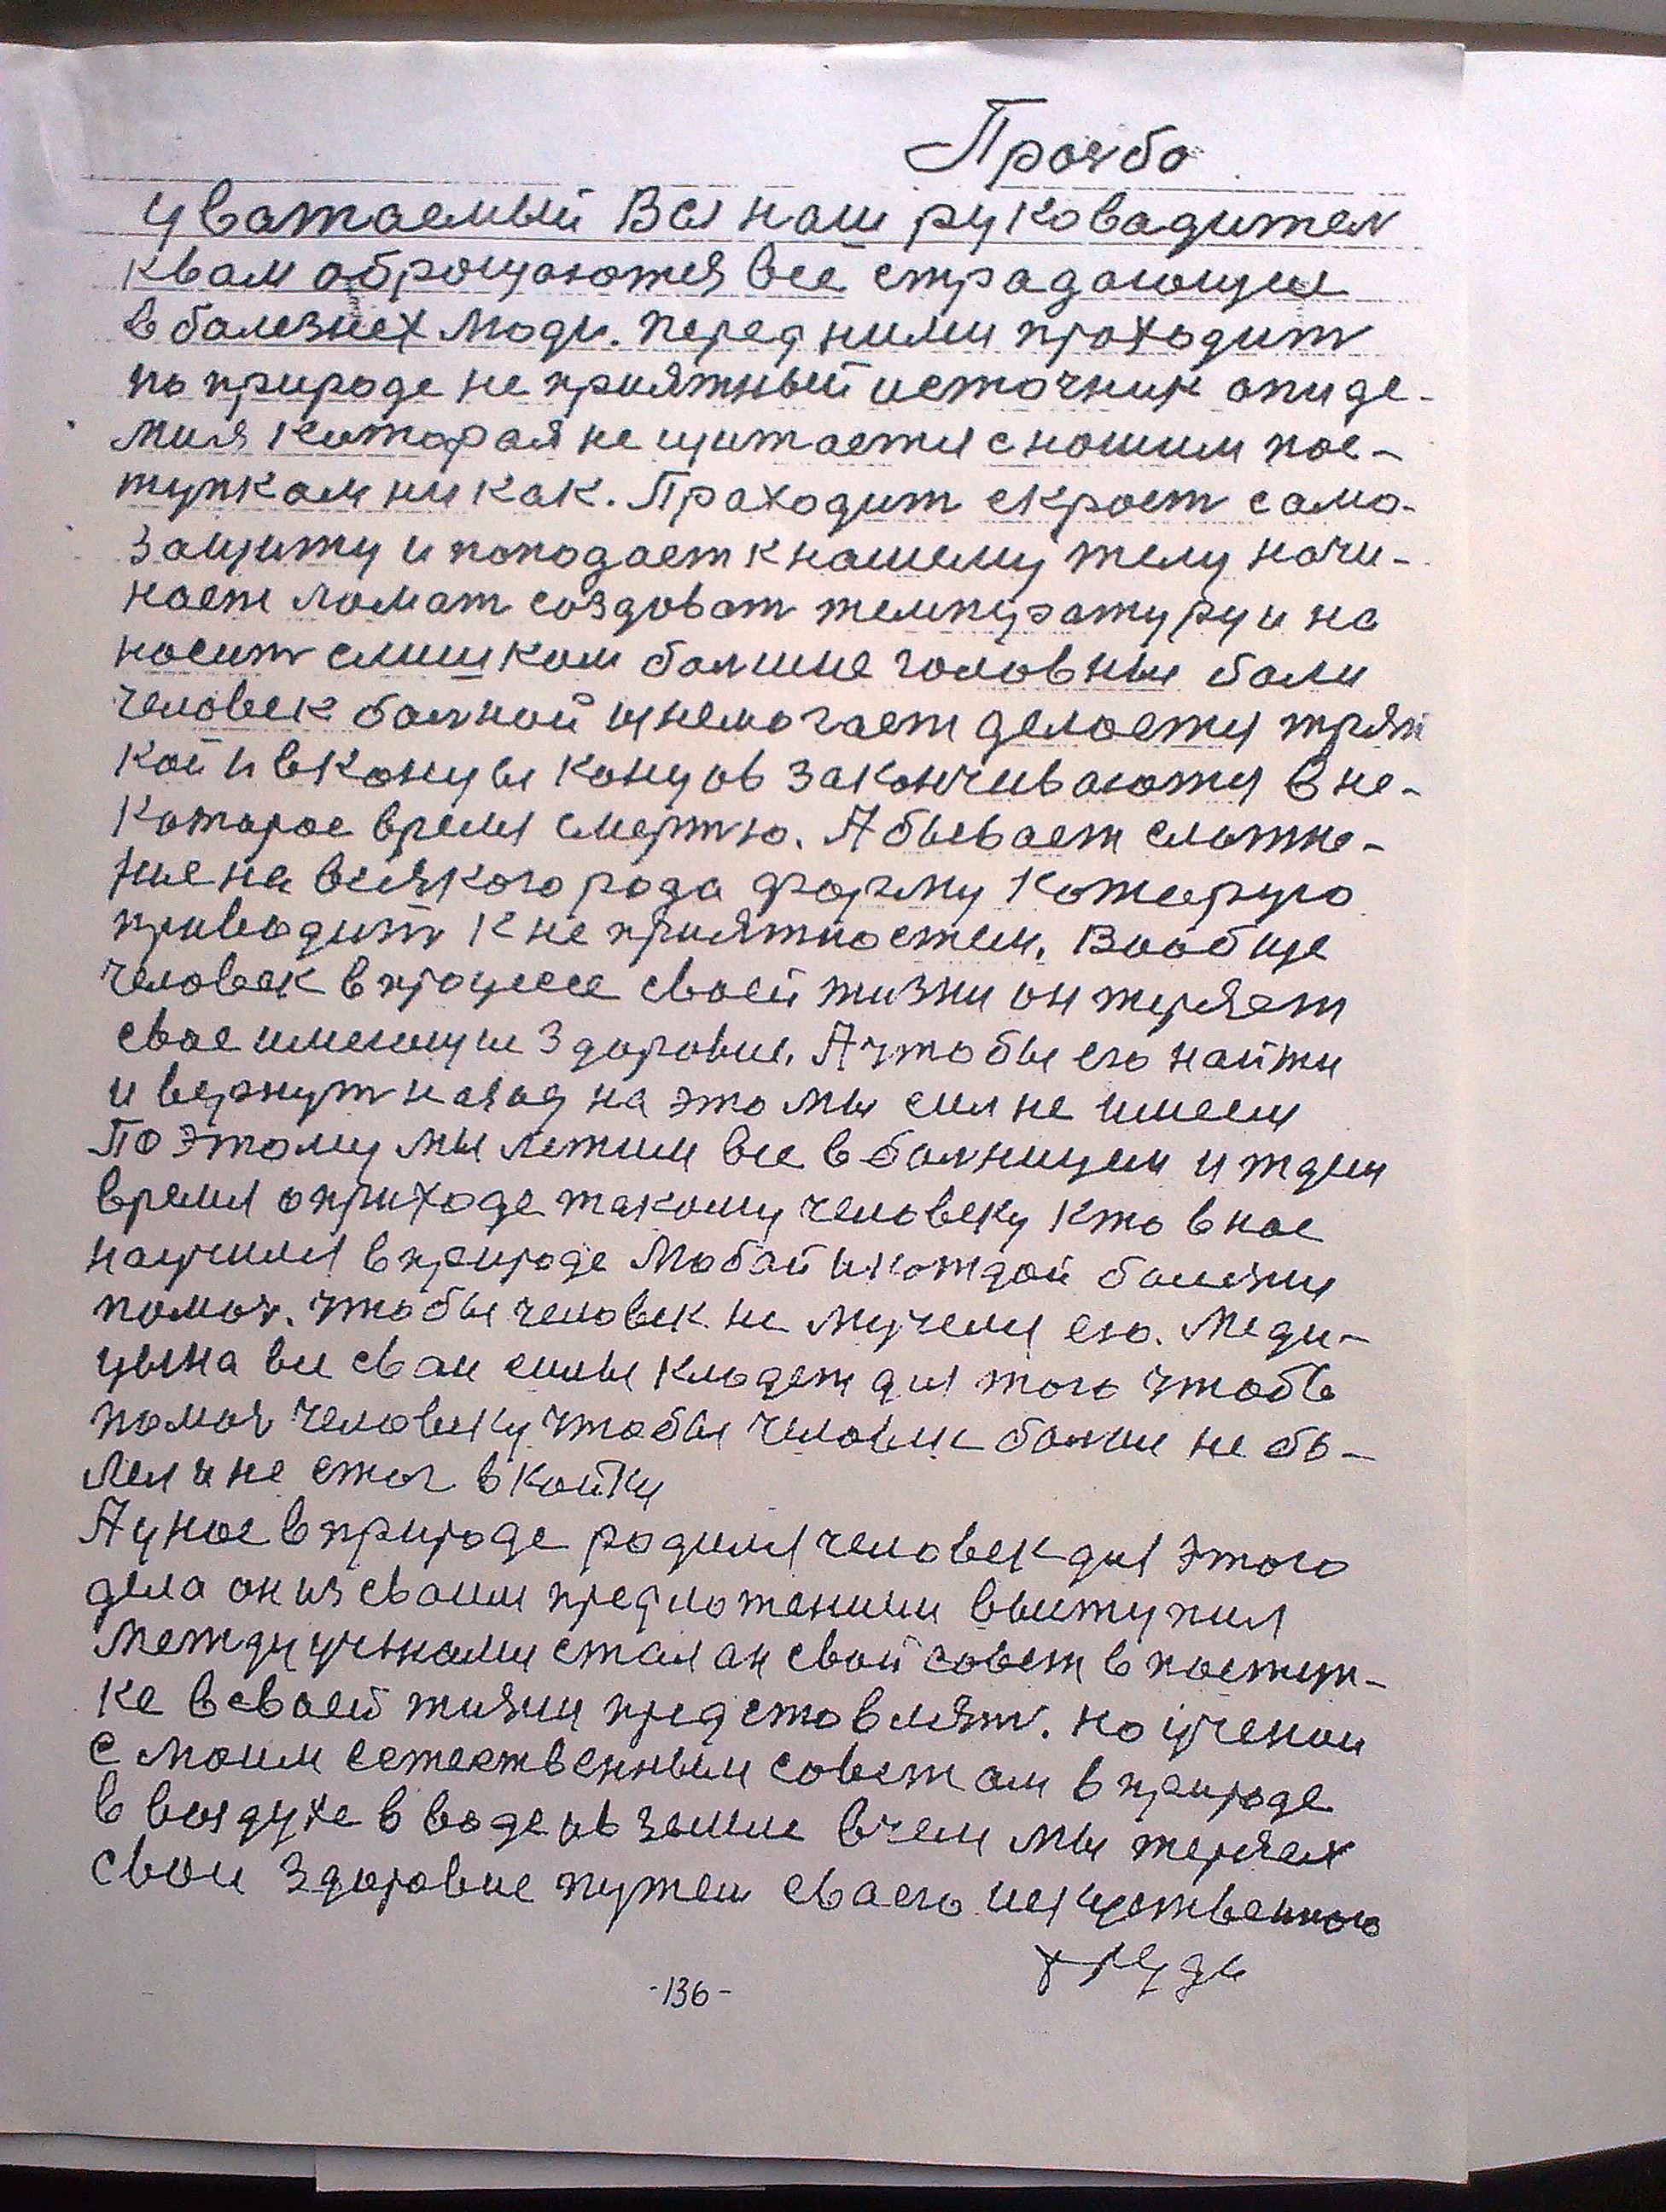 Прозба
Уважаемый Вы наш руковадител
квам оброщаются все страдающии
в болезнех люди. перед ними проходит
по природе не приятный источник эпиде-
мия каторая не щитается снашим пос-
тупкам ни как. Праходит скрозт само-
защиту и поподает к нашему телу начи-
нает ломат создоват температуру и на
носит слишком болшие головные боли
человек болной изнемогает делается тряп
кой и вконцы концов заканчиваются в не-
которое время смертю. А бывает сложне-
ние на всякого рода форму которую
приводит к не приятностям. Вообще
человек в процессе своей жизни он теряет
свое имеющие здоровие. А чтобы его найти
и вернут назад на это мы сил не имеем
По этому мы лежим все в болницеи и ждем
время о приходе такому человеку кто в нас
научился в природе любой и каждой болезни
помоч. чтобы человек не мучели его. Меди-
цына все сваи силы кладет для того чтобы
помоч человеку чтобы человек болше не бо-
лел и не слег в койку
А у нас в природе родился человек для этого
дела он из сваим предложением выступил
Между учеными стал он свой совет в поступ-
ке в сваей жизни предстовлят. но ученои
с моим естественным советам в природе
в воздухе в воде и в земле в чем мы теряех
свои здоровие путем сваего искуственого
-136-